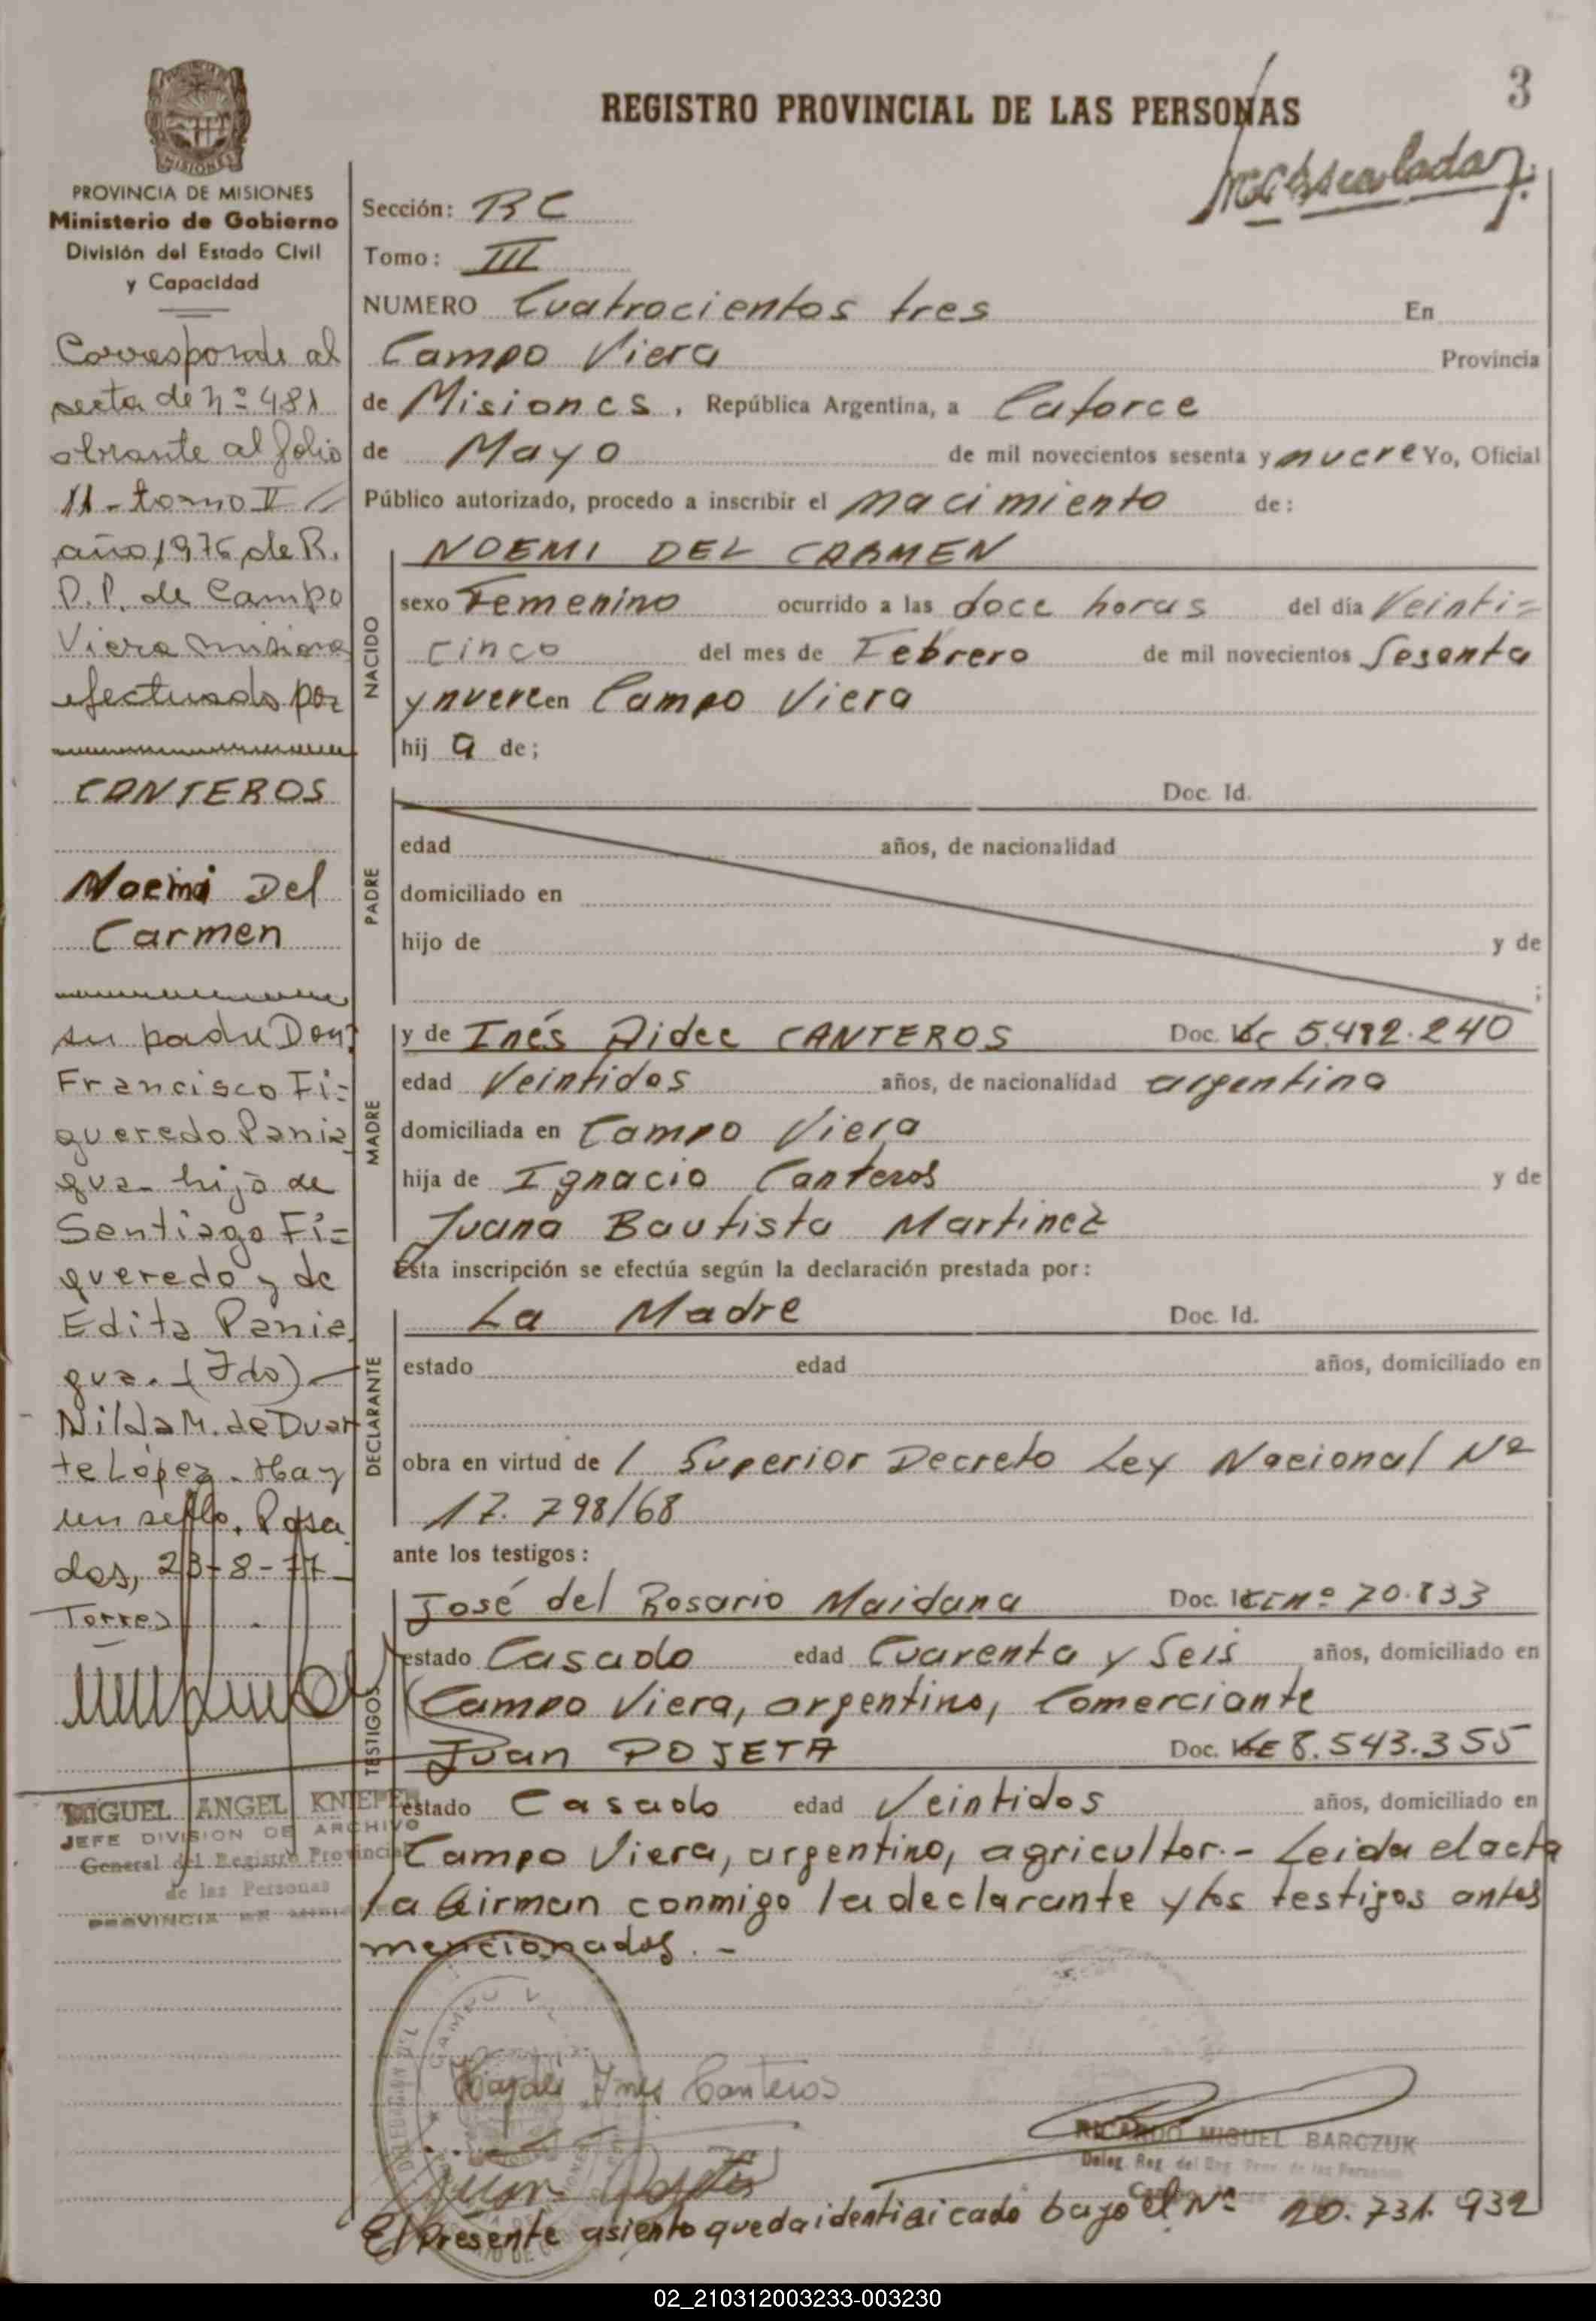 3
REGISTRO PROVINCIAL DE LAS PERSONAS
MISIONES
PROVINCIA DE MISIONES
Ministerio de Gobierno
División del Estado Civil
y Capacidad
Corresponde al
acta de nº 481
obrante al folio
11 - tomo II //
año 1976 de R.
P.P. de Campo
Viera Misiones
efectuado por
CANTEROS
Noemi Del
Carmen
su padre Don:
Francisco Fi=
gueredo Pania
gua - hijo de
Santiago Fi=
gueredo y de
Edita Pania
gua. (Fdo) -
Nilda M. de Duar
te López. Hay
un sello. Posa
das, 23-8-77
Torres
MIGUEL ANGEL KNIEPER
JEFE DIVISION DE ARCHIVO
General del Registro Provincial
de las Personas
PROVINCIA DE MISIONES
Sección: RC
Tomo: III
NUMERO Cuatrocientos tres En
Campo Viera Provincia
de Misiones, República Argentina, a Catorce
de Mayo de mil novecientos sesenta y nueve Yo, Oficial
Público autorizado, procedo a inscribir el nacimiento de:
NACIDO
NOEMI DEL CARMEN
sexo Femenino ocurrido a las doce horas del día Veinti=
cinco del mes de Febrero de mil novecientos Sesenta
y nueve en Campo Viera
hij a de;
PADRE
Doc. Id.
edad años, de nacionalidad
domiciliado en
hijo de y de
;
MADRE
y de Inés Aidee CANTEROS Doc. LC 5.412.240
edad Veintidos años, de nacionalidad argentina
domiciliada en Campo Viera
hija de Ignacio Canteros y de
Juana Bautista Martinez
Esta inscripción se efectúa según la declaración prestada por:
DECLARANTE
La Madre Doc. Id.
estado edad años, domiciliado en
obra en virtud de / Superior Decreto Ley Nacional Nº
17.798/68
ante los testigos:
TESTIGOS
José del Rosario Maidana Doc. Id. CI nº 70.833
estado Casado edad Cuarenta y Seis años, domiciliado en
Campo Viera, argentino, Comerciante
Juan POJETA Doc. LE 8.543.355
estado Casado edad Veintidos años, domiciliado en
Campo Viera, argentino, agricultor.- Leida el acta
la firman conmigo la declarante y los testigos antes
mencionados. -
Haydée Ines Canteros
RICARDO MIGUEL BARCZUK
Deleg. Reg. del Reg. Prov. de las Personas
El presente asiento queda identificado bajo el Nº 20.731.932
02_210312003233-003230